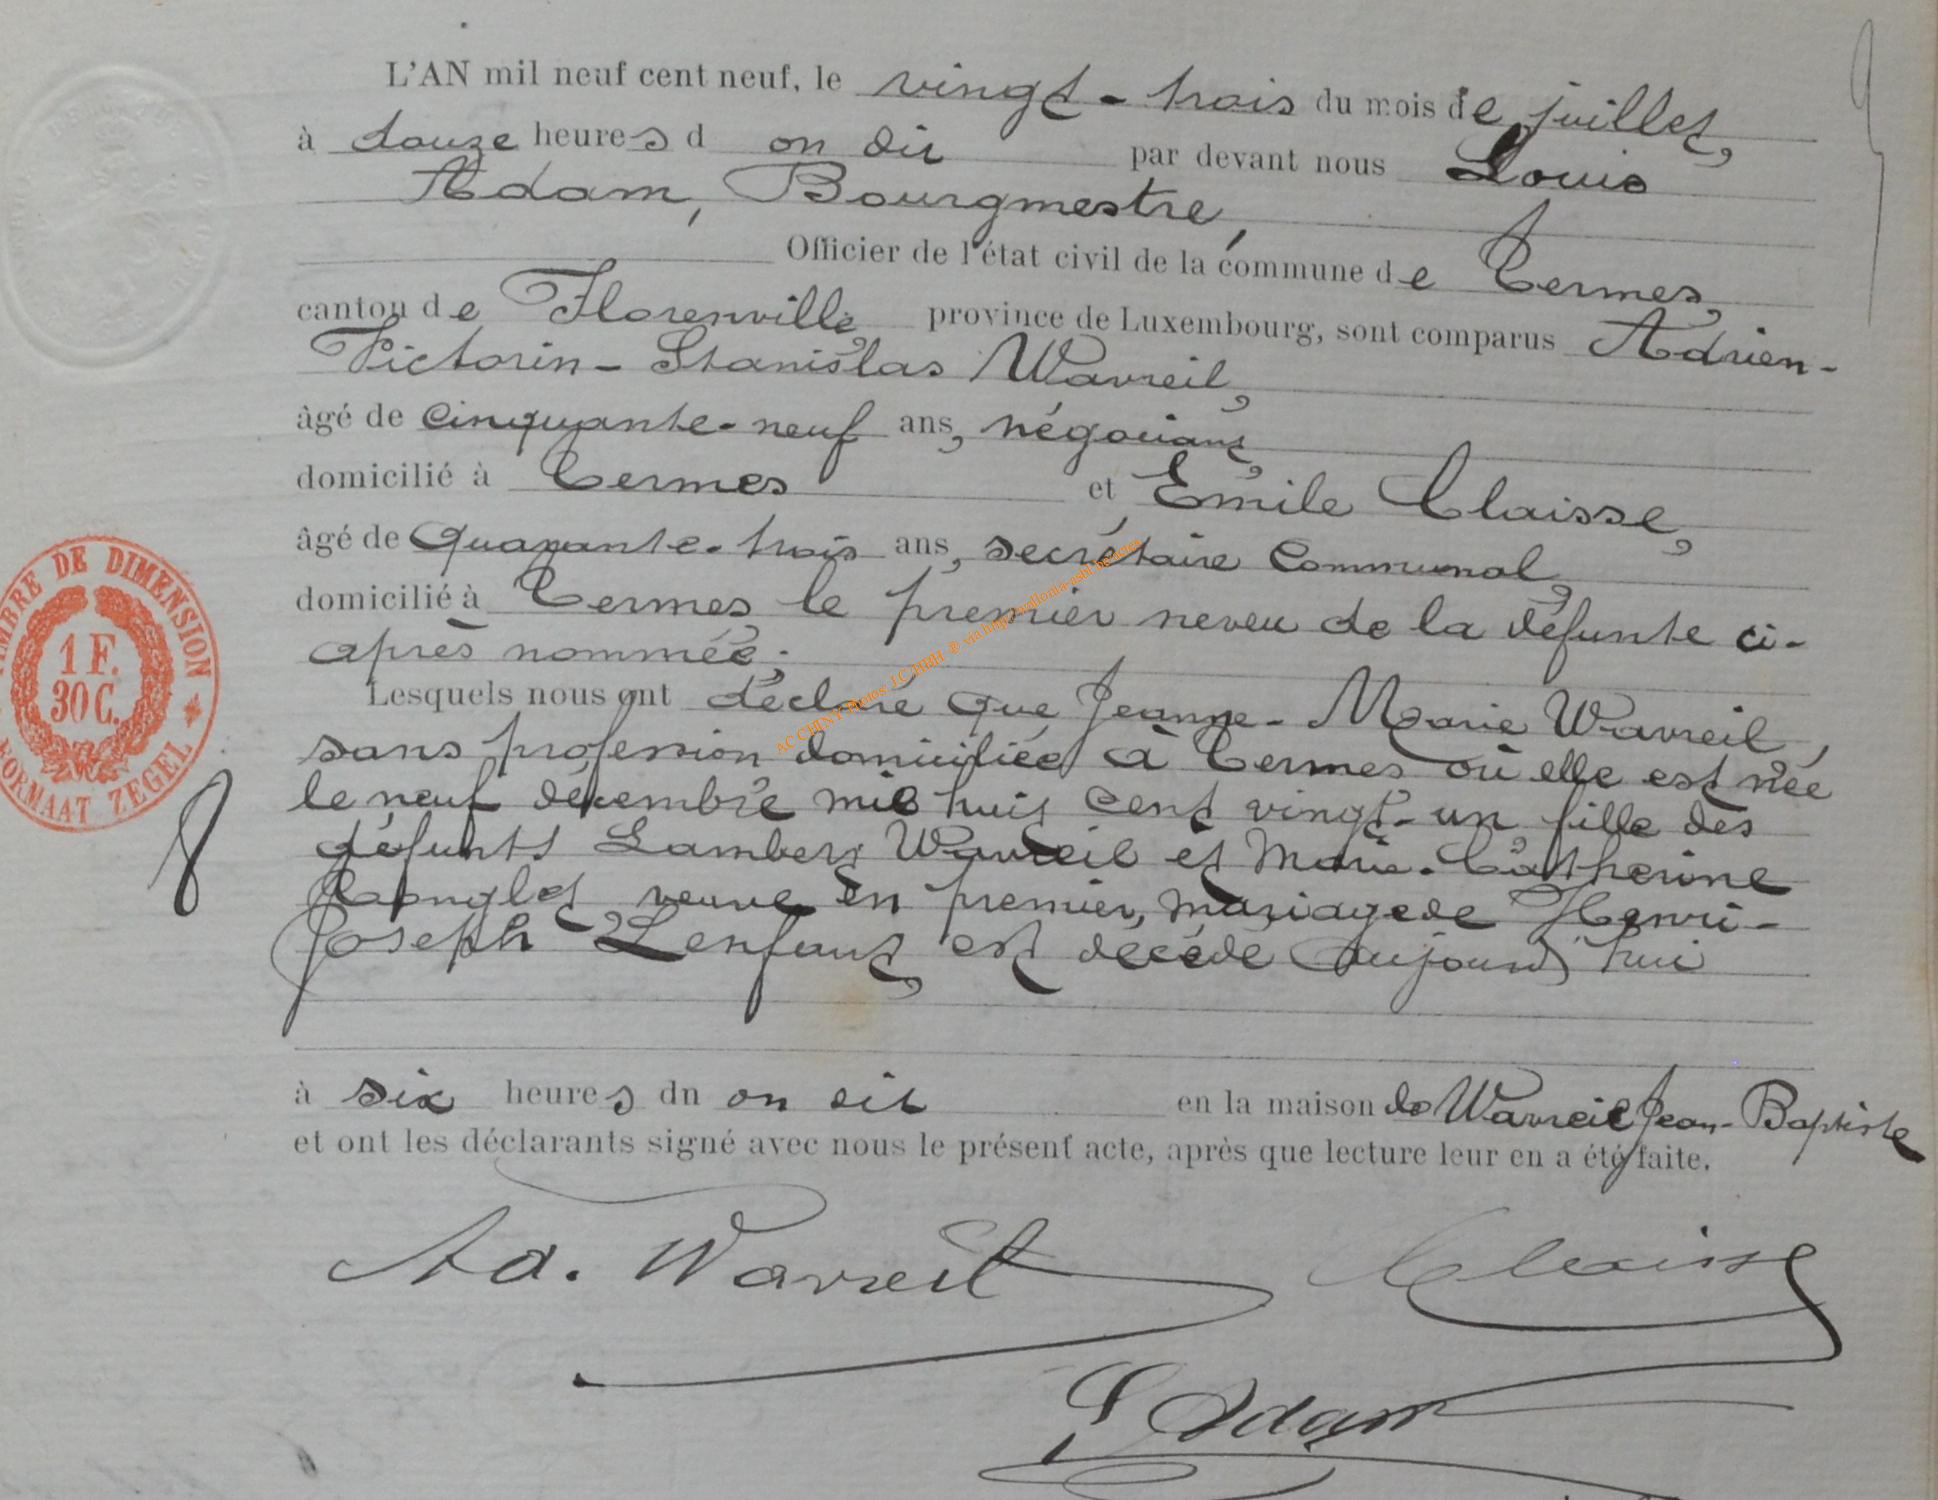 L'AN mil neuf cent neuf, le vingt-trois du mois de juillet,
à douze heures d on dit par devant nous Louis
Adam, Bourgmestre,
Officier de l'état civil de la commune de Termes,
canton de Florenville, province de Luxembourg, sont comparus Adrien-
Victorin-Stanislas Wavreil,
âgé de cinquante-neuf ans, négociant,
domicilié à Termes et Emile Claisse,
âgé de quarante-trois ans, secrétaire communal,
domicilié à Termes, le premier neveu de la défunte ci-
après nommée;
Lesquels nous ont déclaré que Jeanne-Marie Wavreil,
sans profession domiciliée à Termes où elle est née
le neuf décembre mil huit cent vingt-un fille des
défunts Lambert Wavreil et Marie-Catherine
veuve en premier mariage de Henri-
Joseph Lenfant, est décédé aujourd'hui
à six heures du on dit en la maison de Wavreil Jean-Baptiste
et ont les déclarants signé avec nous le présent acte, après que lecture leur en a été faite.
Ad. Wavreil Claisse
L Adam
TIMBRE DE DIMENSION
1 F.
30 C.
FORMAAT ZEGEL
8
AC CHINY Photos J.C HBH ® via http://wallonia-asbl.be/actes